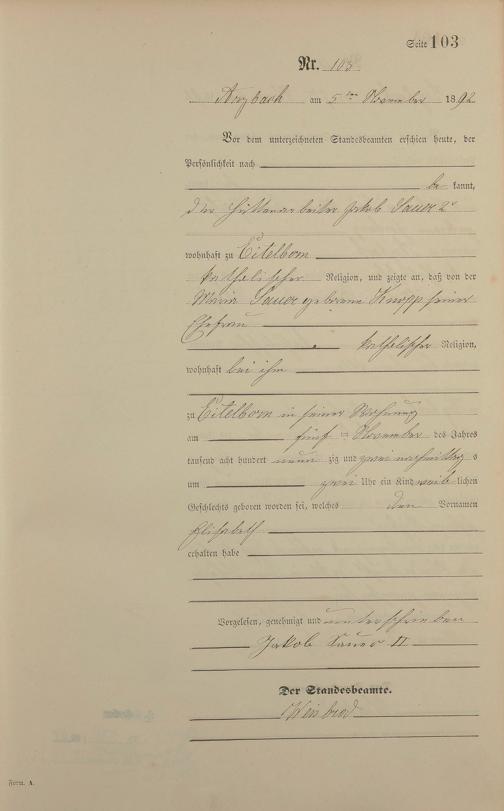 Seite 103
Nr. 103
Arzbach am 5ten November 1892
Vor dem unterzeichneten Standesbeamten erschien heute, der
Persönlichkeit nach
be kannt,
der Hüttenarbeiter Jakob Sauer 2r
wohnhaft zu Eitelborn
katholischer Religion, und zeigte an, daß von der
Maria Sauer geborene Knopp seiner
Ehefrau
katholischer Religion,
wohnhaft bei ihm
zu Eitelborn in seiner Wohnung
am fünf November des Jahres
tausend acht hundert neun zig und zwei nachmittag s
um zwei Uhr ein Kind weib lichen
Geschlechts geboren worden sei, welches den Vornamen
Elisabeth
erhalten habe
Vorgelesen, genehmigt und unterschrieben
Jakob Sauer II
Der Standesbeamte.
Form. A.